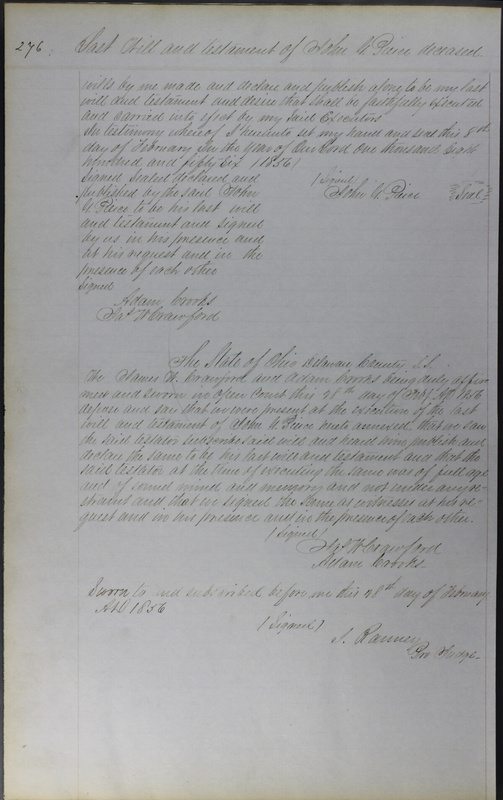 276.
Last Will and testament of John W Peirce deceased
wills by me made and declare and publish alone to be my last
will and testament and desire that shall be faithfully executed
and carried into effect by my said Executors
In testimony whereof I hereunto set my hand and seal this 8th
day of February In the Year of Our Lord One thousand Eight
hundred and fifty Six (1856)
Signed Sealed declared and
published by the said John
W Peirce to be his last will
and testament and signed
by us in his presence and
at his request and in the
presence of each other
Signed
(Signed)
John W Peirce
Seal
Adam Crooks
Jas W Crawford
The State of Ohio Delaware County, S.S.
We James W. Crawford and Adam Crooks being duly affir
med and sworn in Open Court this 28th day of Feby AD 1856
depose and say that we were present at the execution of the last
will and testament of John W Peirce hereto annexed that we saw
the said testator subscribe said will and heard him publish and
declare the same to be his last will and testament and that the
said testator at the time of executing the same was of full age
and of sound mind and memory and not under any re-
straint and that we signed the same as witnesses at his re-
quest and in his presence and in the presence of each other.
(Signed)
Jas W Crawford
Adam Crooks.
Sworn to and subscribed before me this 28th day of February
AD 1856
(Signed)
Pro Judge.